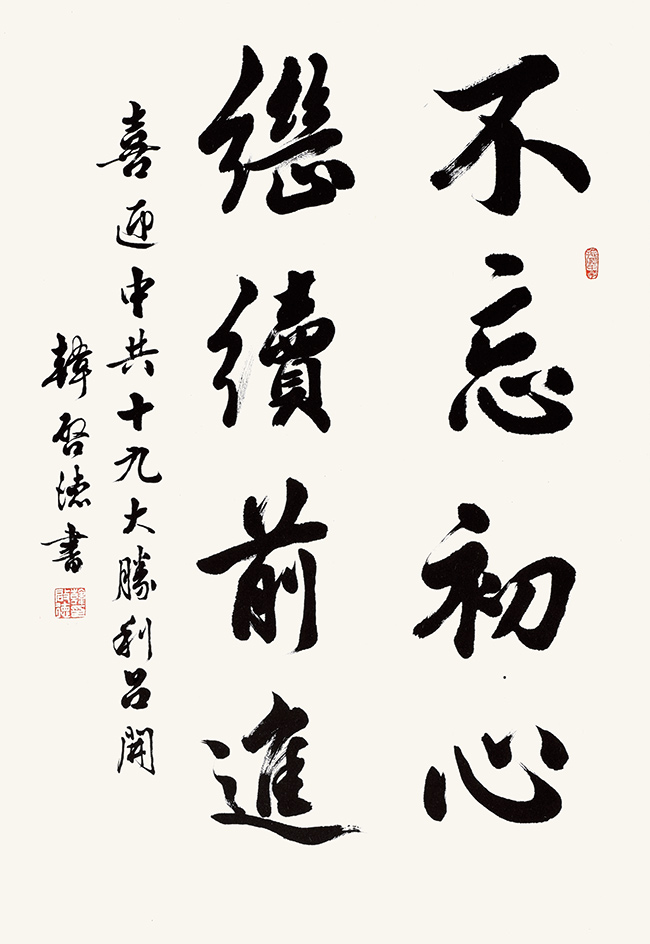 不忘初心
繼續前進
喜迎中共十九大勝利召開
韓啓德書